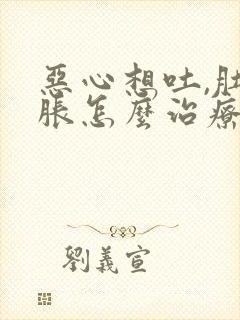 惡心想吐,肚
脹怎麼治療
劉義宣